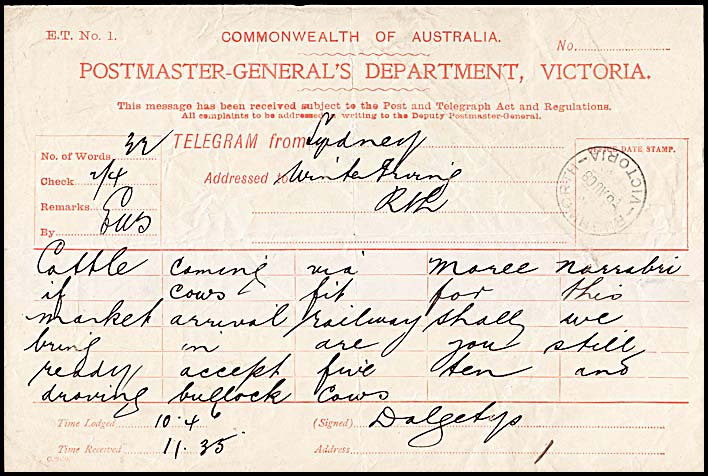 E.T. No. 1.
COMMONWEALTH OF AUSTRALIA.
No.
POSTMASTER-GENERAL'S DEPARTMENT, VICTORIA.
This message has been received subject to the Post and Telegraph Act and Regulations.
All complaints to be addressed in writing to the Deputy Postmaster-General.
No. of Words 32
TELEGRAM from Sydney
DATE STAMP.
Check 2/4
Addressed to Winter Irving
Remarks
By
VICTORIA
Cattle coming via Moree Narrabri
if cows fit for this
market arrival railway shall we
bring in are you still
ready accept five ten and
droving bullock cows
Time Lodged 10.46
(Signed) Dalgetys
Time Received 11.35
Address